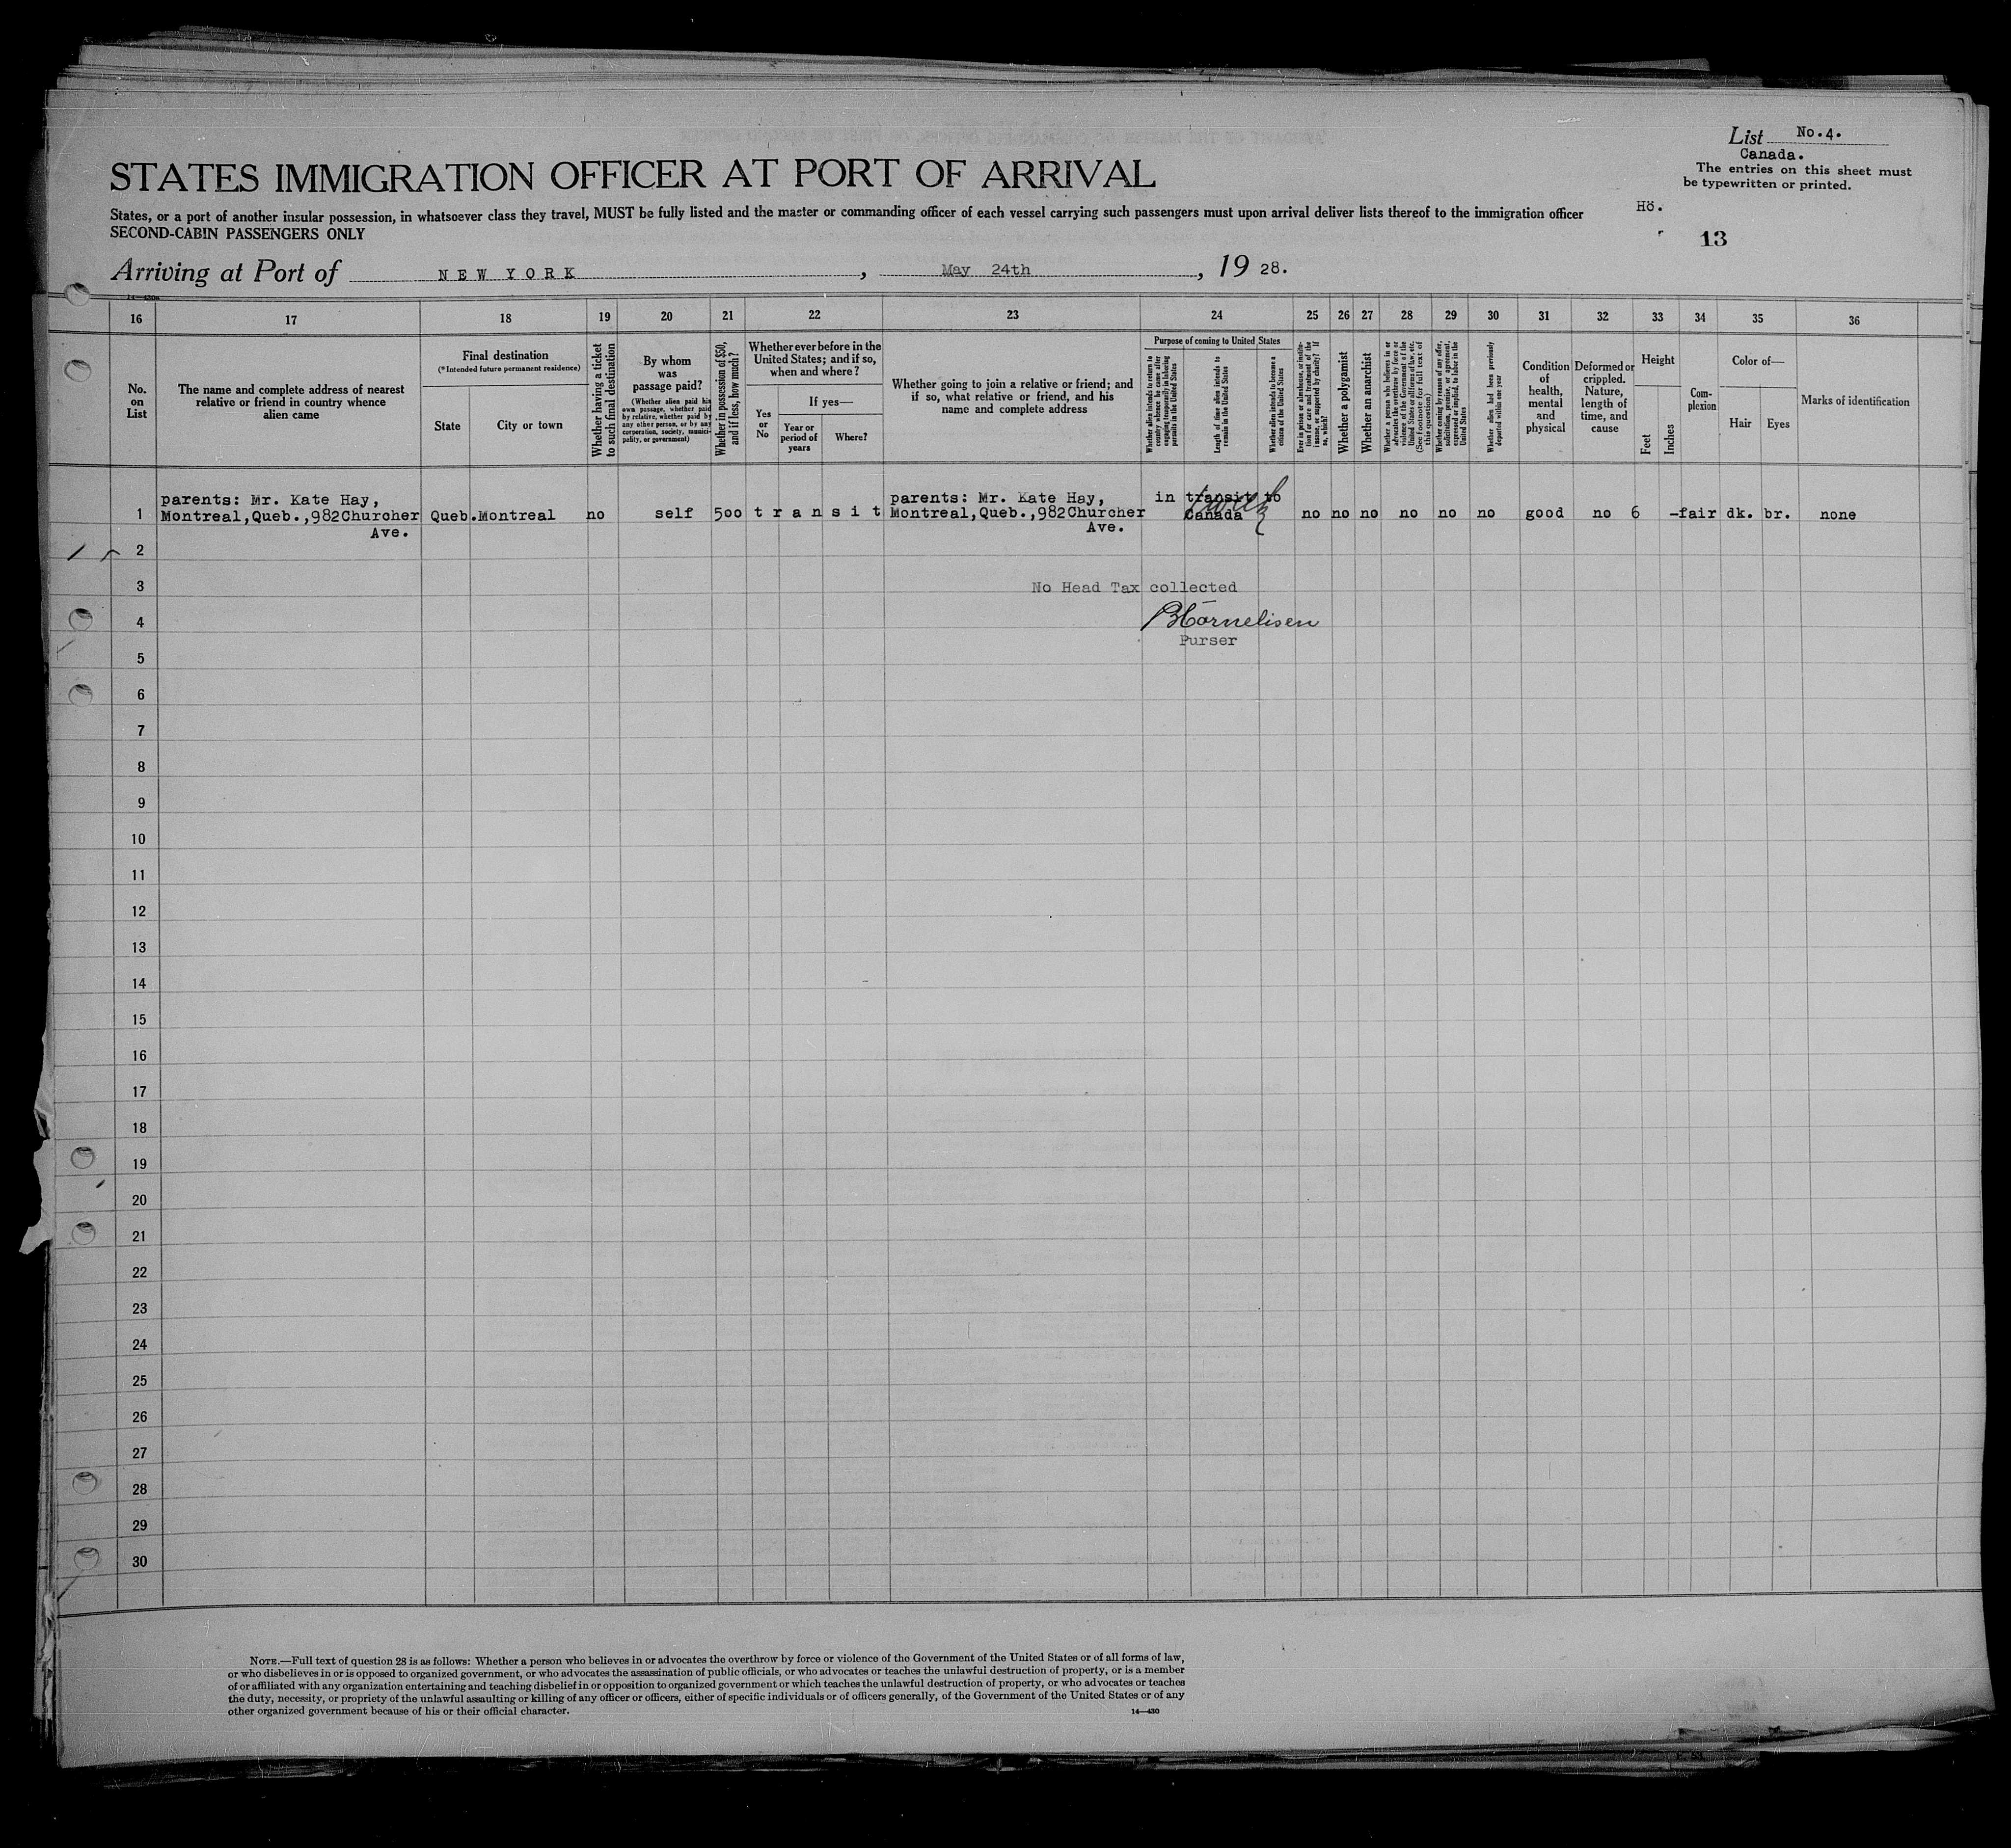 List No.4.
Canada.
The entries on this sheet must
be typewritten or printed.
STATES IMMIGRATION OFFICER AT PORT OF ARRIVAL
States, or a port of another insular possession, in whatsoever class they travel, MUST be fully listed and the master or commanding officer of each vessel carrying such passengers must upon arrival deliver lists thereof to the immigration officer
SECOND-CABIN PASSENGERS ONLY
Hö.
13
Arriving at Port of NEW YORK, May 24th, 19 28.
16 17 18 19 20 21 22 23 24 25 26 27 28 29 30 31 32 33 34 35 36
No.
on
List
The name and complete address of nearest
relative or friend in country whence
alien came
Final destination
(*Intended future permanent residence)
State
City or town
Whether having a ticket
to such final destination
By whom
was
passage paid?
(Whether alien paid his
own passage, whether paid
by relative, whether paid by
any other person, or by any
corporation, society, munici-
pality, or government)
Whether in possession of $50,
and if less, how much?
Whether ever before in the
United States; and if so,
when and where?
Yes
or
No
If yes—
Year or
period of
years
Where?
Whether going to join a relative or friend; and
if so, what relative or friend, and his
name and complete address
Purpose of coming to United States
Whether alien intends to return to
country whence he came after
engaging temporarily in laboring
pursuits in the United States
Length of time alien intends to
remain in the United States
Whether alien intends to become a
citizen of the United States
Ever in prison or almshouse, or institu-
tion for care and treatment of the
insane, or supported by charity? If
so, which?
Whether a polygamist
Whether an anarchist
Whether a person who believes in or
advocates the overthrow by force or
violence of the Government of the
United States or all forms of law, etc.
(See footnote for full text of
this question)
Whether coming by reason of any offer,
solicitation, promise, or agreement,
expressed or implied, to labor in the
United States
Whether alien had been previously
deported within one year
Condition
of
health,
mental
and
physical
Deformed or
crippled.
Nature,
length of
time, and
cause
Height
Feet
Inches
Com-
plexion
Color of—
Hair
Eyes
Marks of identification
parents: Mr. Kate Hay, parents: Mr. Kate Hay, in transit to
1 Montreal,Queb.,982Churcher Queb.Montreal no self 500 transit Montreal,Queb.,982Churcher Canada no no no no no no good no 6 -fair dk. br. none
Ave. Ave.
2
3 No Head Tax collected
4 Cornelisen
Purser
5
6
7
8
9
10
11
12
13
14
15
16
17
18
19
20
21
22
23
24
25
26
27
28
29
30
NOTE.—Full text of question 28 is as follows: Whether a person who believes in or advocates the overthrow by force or violence of the Government of the United States or of all forms of law,
or who disbelieves in or is opposed to organized government, or who advocates the assassination of public officials, or who advocates or teaches the unlawful destruction of property, or is a member
of or affiliated with any organization entertaining and teaching disbelief in or opposition to organized government or which teaches the unlawful destruction of property, or who advocates or teaches
the duty, necessity, or propriety of the unlawful assaulting or killing of any officer or officers, either of specific individuals or of officers generally, of the Government of the United States or of any
other organized government because of his or their official character.
14—430